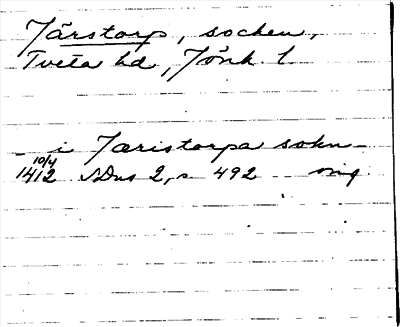 Järstorp, socken,
Tveta hd, Jönk. l.
i Jæristorpa sokn
10/4
1412 SDns 2, s. 492 orig.